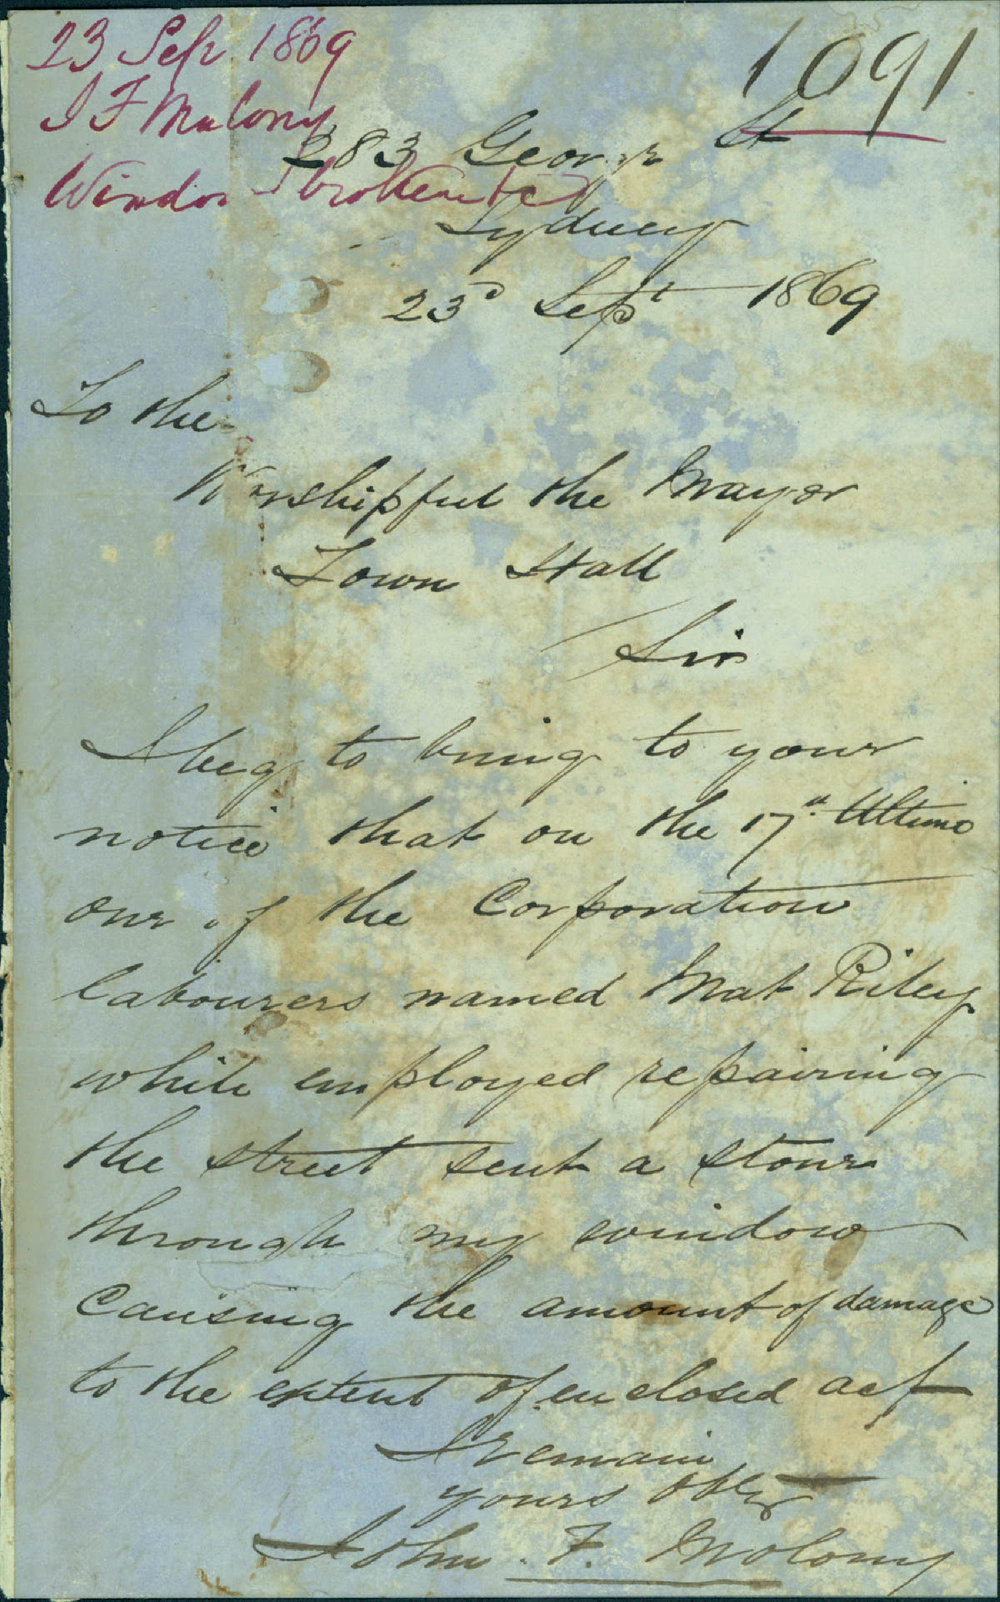 23 Sep 1869
1091
J F Molony
Window broken &c
283 George St
Sydney
23d Sept 1869
To the
Worshipful the Mayor
Town Hall
Sir
I beg to bring to your
notice that on the 17th Ultimo
one of the Corporation
labourers named Mat Riley
while employed repairing
the street sent a stone
through my window
Causing the amount of damage
to the extent of enclosed act
I remain
yours obtly
John F. Molony